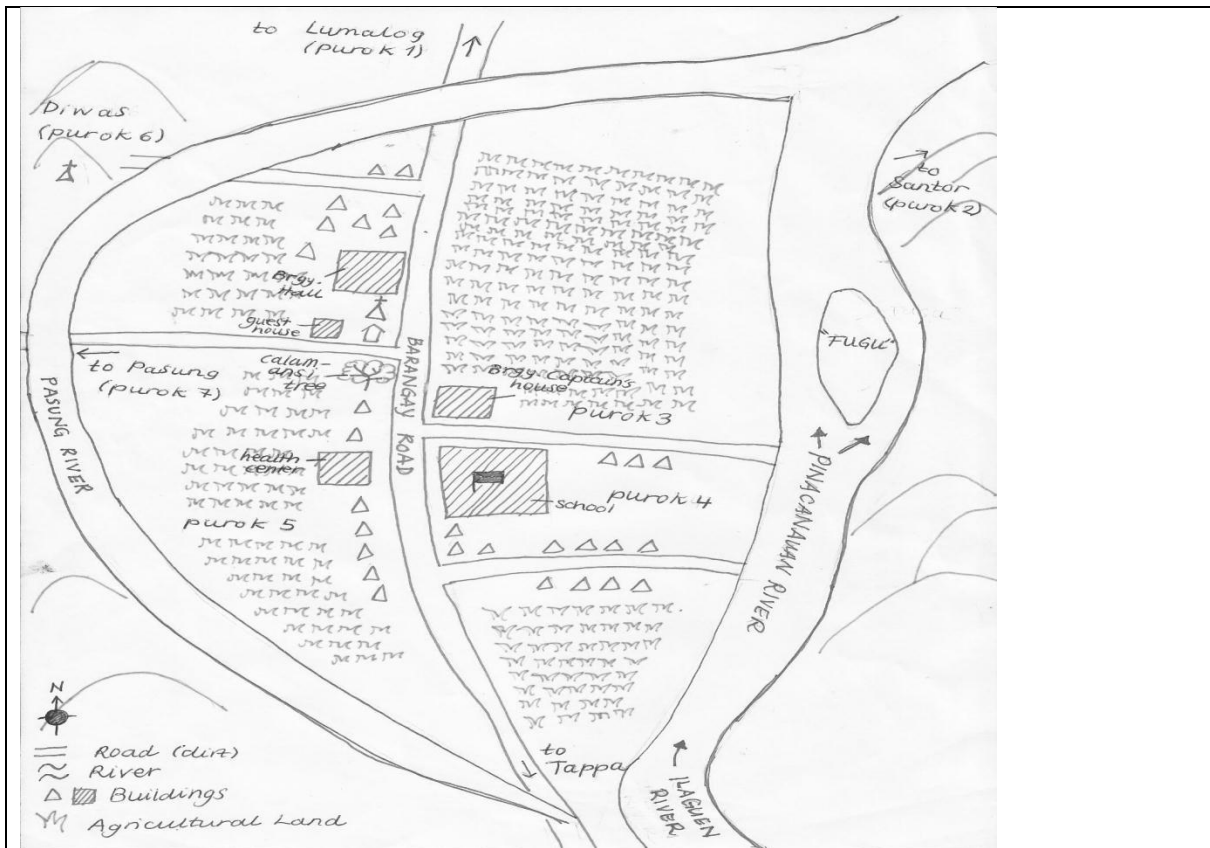 to Lumalog
(purok 1)
Diwas
(purok 6)
to
Santor
(purok 2)
Brgy.
Hall
guest
house
"FUGU"
to Pasung
(purok 7)
calam-
ansi
tree
BARANGAY ROAD
Brgy Captain's
house
purok 3
PASUNG RIVER
health
center
school
purok 4
purok 5
PINACANAWAN RIVER
N
to
Tappa
ILAGUEN
RIVER
Road (dirt)
River
Buildings
Agricultural Land